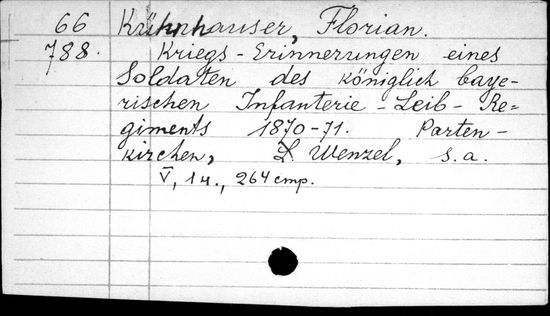 66 Kühnhauser, Florian.
788. Kriegs-Erinnerungen eines
Soldaten des königlich baye-
rischen Infanterie-Leib-Re=
giments 1870-71. Parten-
kirchen, L Wenzel, s.a.
V, 1 н., 264 стр.